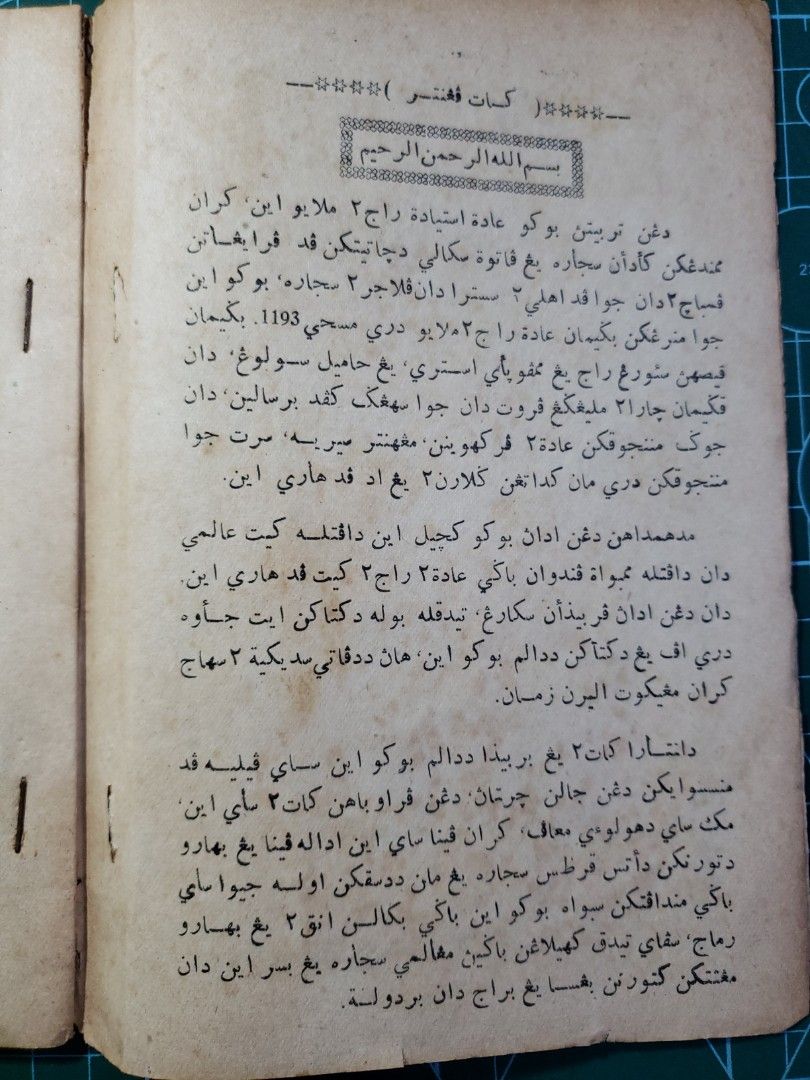 --☆☆☆☆( كـات ڤڠنتـر )☆☆☆☆--
بسـم الله الرحمن الرحيم
دڠن تربيتن بوكو عادة استيادة راج٢ ملايو اين، كران
ممندڠكن كأدأن سجاره يڠ ڤاتوة سكالي دچاتيتكن ڤد ڤرايڠـاتن
ڤمباچ٢ دان جوا ڤد اهلي٢ سسترا دان ڤلاجر٢ سجاره، بوكو اين
جوا منرڠكن بڬيمان عادة راج٢ ملايو دري مسحي 1193. بڬيمان
قيصهن سئورڠ راج يڠ ممڤوپأي استري، يڠ حاميل سـولوڠ، دان
قڬيمان چارا٢ مليڠڬڠ ڤروت دان جوا سهڠڬ كڤد برسالين، دان
جوڬ مننجوقكن عادة٢ ڤركهوينن، مڠهنتر سيريـه، سرت جوا
مننجوقكن دري مان كداتڠن ڬلارن٢ يڠ اد ڤد هاري اين.
مدهمداهن دڠن ادان بوكو كچيل اين داڤتلـه كيت عالمي
دان داڤتله ممبواة ڤندوان باڬي عادة٢ راج٢ كيت ڤد هاري اين.
دان دڠن ادان ڤربيذأن سكارڠ، تيدقله بوله دكتاكن ايت جـأوه
دري اڤ يڠ دكتآكن ددالم بوكو اين، هان ددڤاتي سديكية ٢ سهاج
كران مڠيكوت اليرن زمـان.
دانتـارا كات٢ يڠ بربيذا ددالم بوكو اين سـاي ڤيليـه ڤد
منسسوايكن دڠن جالن چرتان، دڠن ڤراوباهن كات٢ سأي اين،
مك ساي دهولوءي معاف، كران ڤينا ساي اين اداله ڤينا يڠ بهارو
دتورنكن دأتس قرطس سجاره يڠ مان ددسقكن اولـه جيوا سأي
باڬي منداڤتكن سبواه بوكو اين باڬي بكالـن انق٢ يڠ بهـارو
رماج، سڤاي تيدق كهيلاڠن باڬين مڠالمي سجاره يڠ بسر اين دان
مڠنتكن كتورنن بڠسـا يڠ براج دان بردولـة.